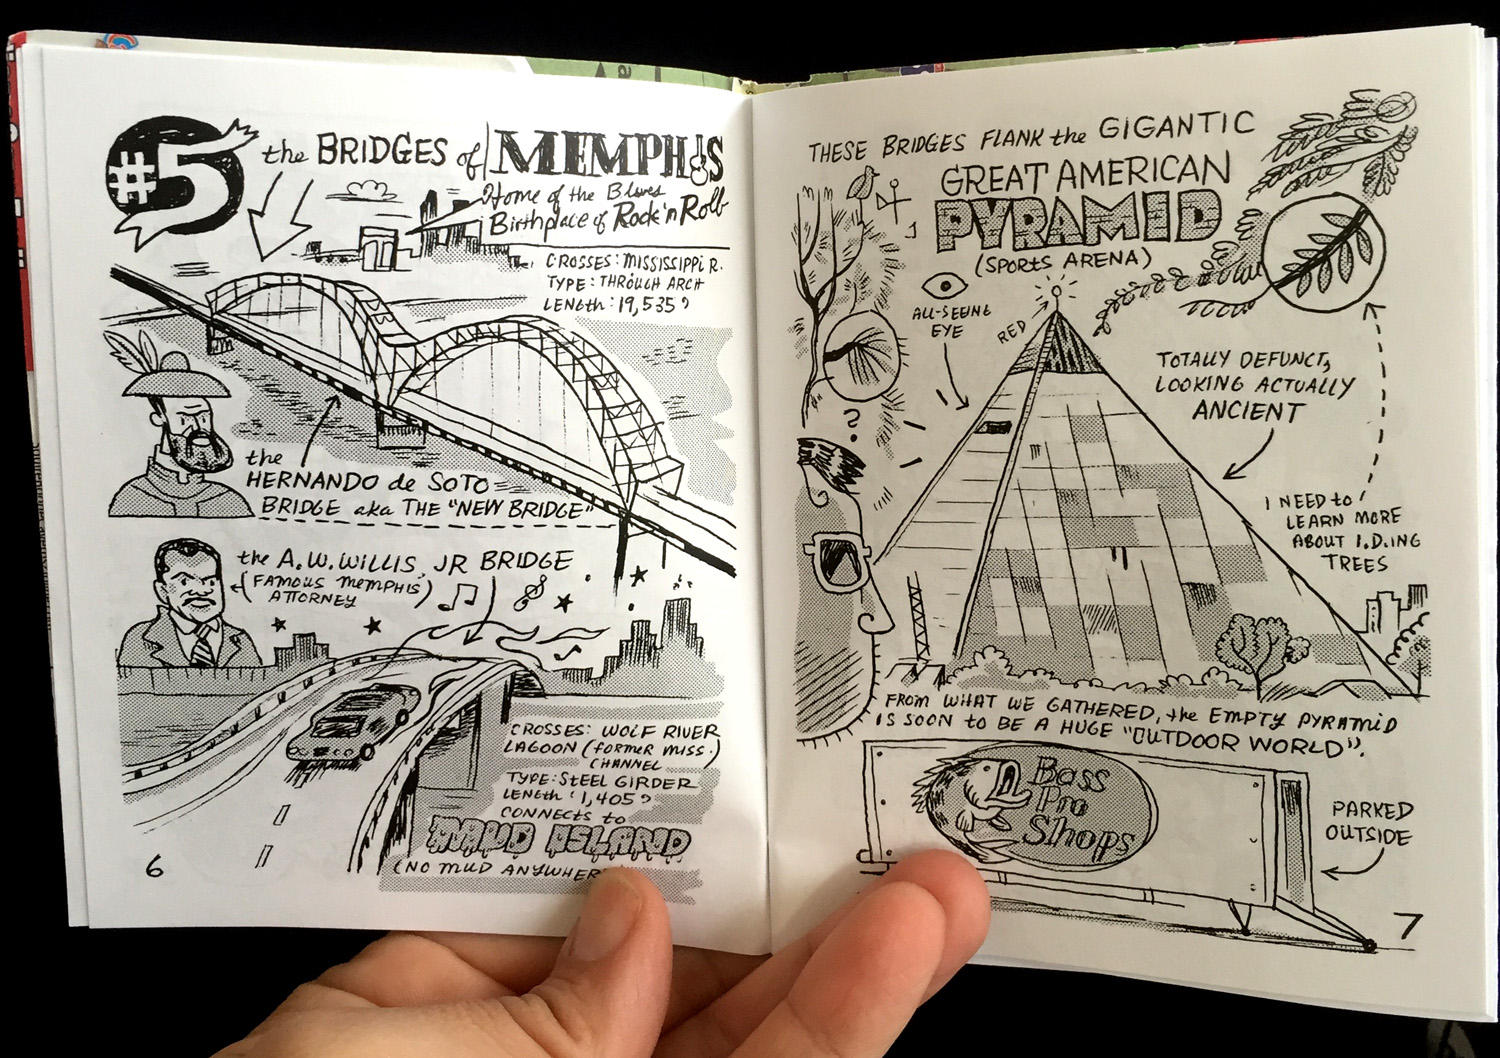 #5
the BRIDGES of MEMPHIS
Home of the Blues
Birthplace of Rock'n Roll
CROSSES: MISSISSIPPI R.
TYPE: THROUGH ARCH
LENGTH: 19,535'
the
HERNANDO de SOTO
BRIDGE aka THE "NEW BRIDGE"
the A.W. WILLIS, JR BRIDGE
(FAMOUS MEMPHIS
ATTORNEY)
CROSSES: WOLF RIVER
LAGOON (former miss.)
CHANNEL
TYPE: STEEL GIRDER
LENGTH: 1,405'
CONNECTS to
MUD ISLAND
(NO MUD
6
THESE BRIDGES FLANK the GIGANTIC
GREAT AMERICAN
PYRAMID
(SPORTS ARENA)
ALL-SEEING
EYE
RED
?
TOTALLY DEFUNCT,
LOOKING ACTUALLY
ANCIENT
I NEED to
LEARN MORE
ABOUT I.D.ING
TREES
FROM WHAT WE GATHERED, the EMPTY PYRAMID
IS SOON to BE A HUGE "OUTDOOR WORLD".
Bass
Pro
Shops
PARKED
OUTSIDE
7